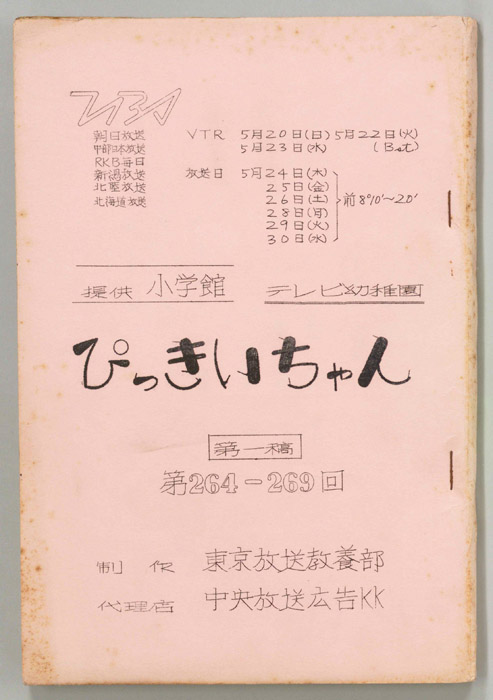 TBS
朝日放送 VTR 5月20日(日) 5月22日(火)
中部日本放送 5月23日(水) (Bst)
RKB毎日
新潟放送 放送日 5月24日(木)
北陸放送 25日(金)
北海道放送 26日(土) 前8°10'~20'
28日(月)
29日(火)
30日(水)
提供 小学館 テレビ幼稚園
ぴっきいちゃん
第一稿
第264-269回
制作 東京放送教養部
代理店 中央放送広告KK